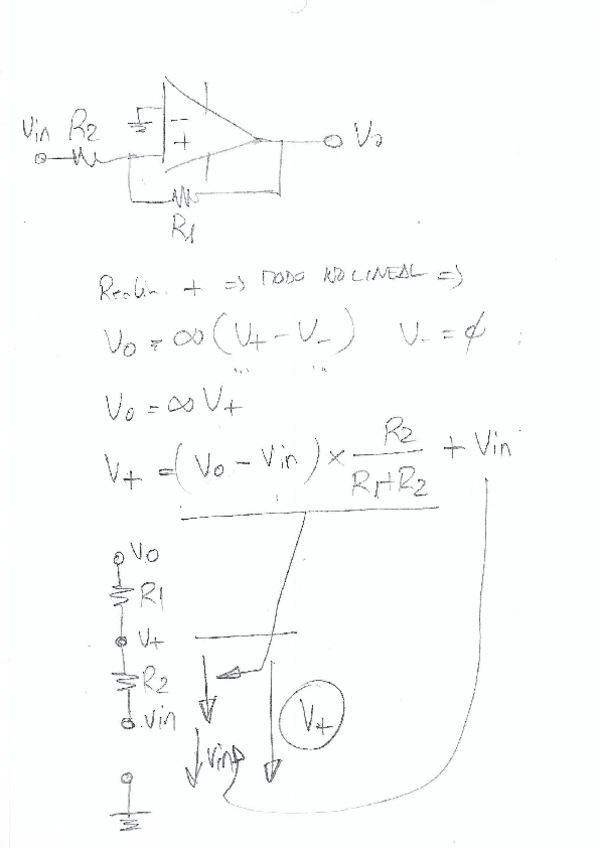 Vin R2
-
+
Vo
R1
+ => MODO NO LINEAL =>
Vo = ∞ (V+ - V-) V- = ϕ
Vo = ∞ V+
V+ = (Vo - Vin) × R2 / R1+R2 + Vin
Vo
R1
V+
R2
Vin
V+
Vin